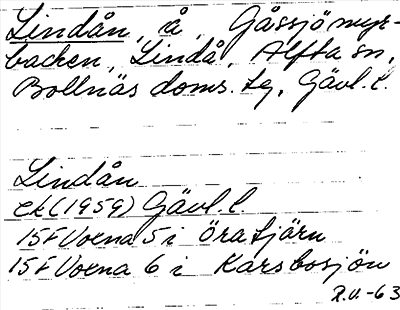 Lindån, å, Gåssjömyr-
backen, Lindå, Alfta sn,
Bollnäs doms. tg, Gävl. l.
Lindån
ek (1959) Gävl. l.
15F Voxna 5 i Öratjärn
15F Voxna 6 i Karsbosjön
R.U.-63